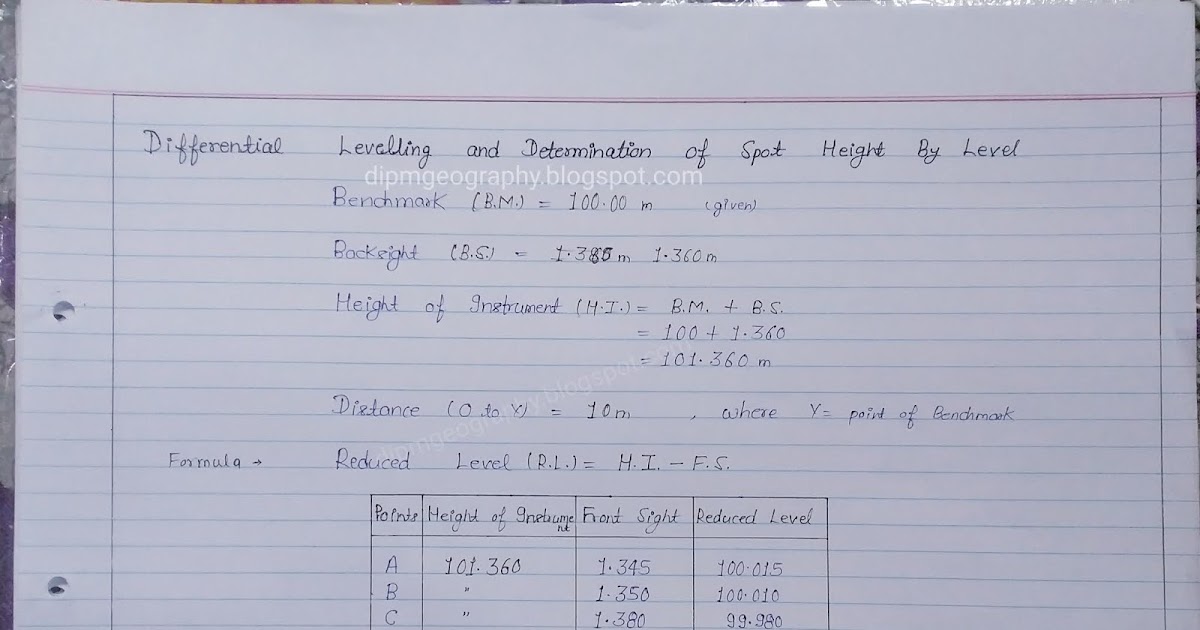 Differential Levelling and Determination of Spot Height By Level
dipmgeography.blogspot.com
Benchmark (B.M.) = 100.00 m (given)
Backsight (B.S.) = 1.360m
Height of Instrument (H.I.) = B.M. + B.S.
= 100 + 1.360
= 101.360 m
dipmgeography.blogspot.com
Distance (O to Y) = 10m , where Y= point of Benchmark
Formula → Reduced Level (R.L.) = H.I. – F.S.
Points Height of Instrument Front Sight Reduced Level
A 101.360 1.345 100.015
B " 1.350 100.010
C " 1.380 99.980